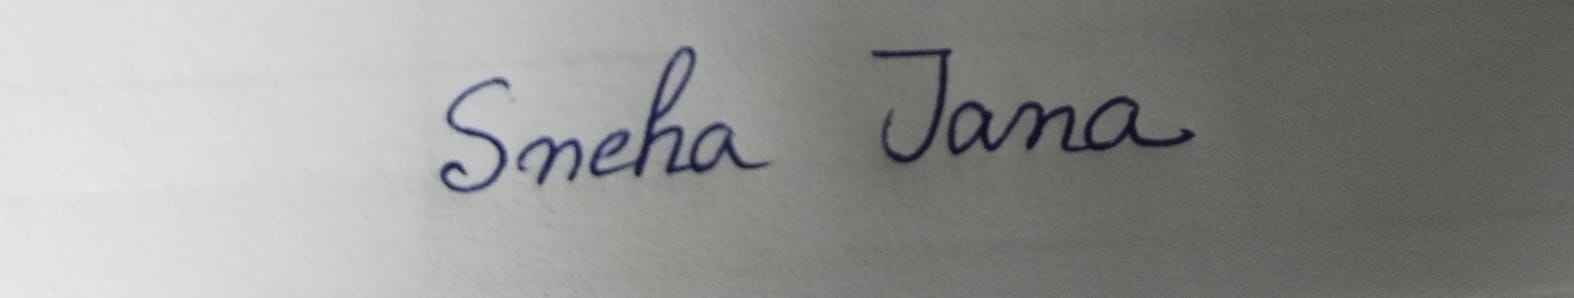 Sneha Jana